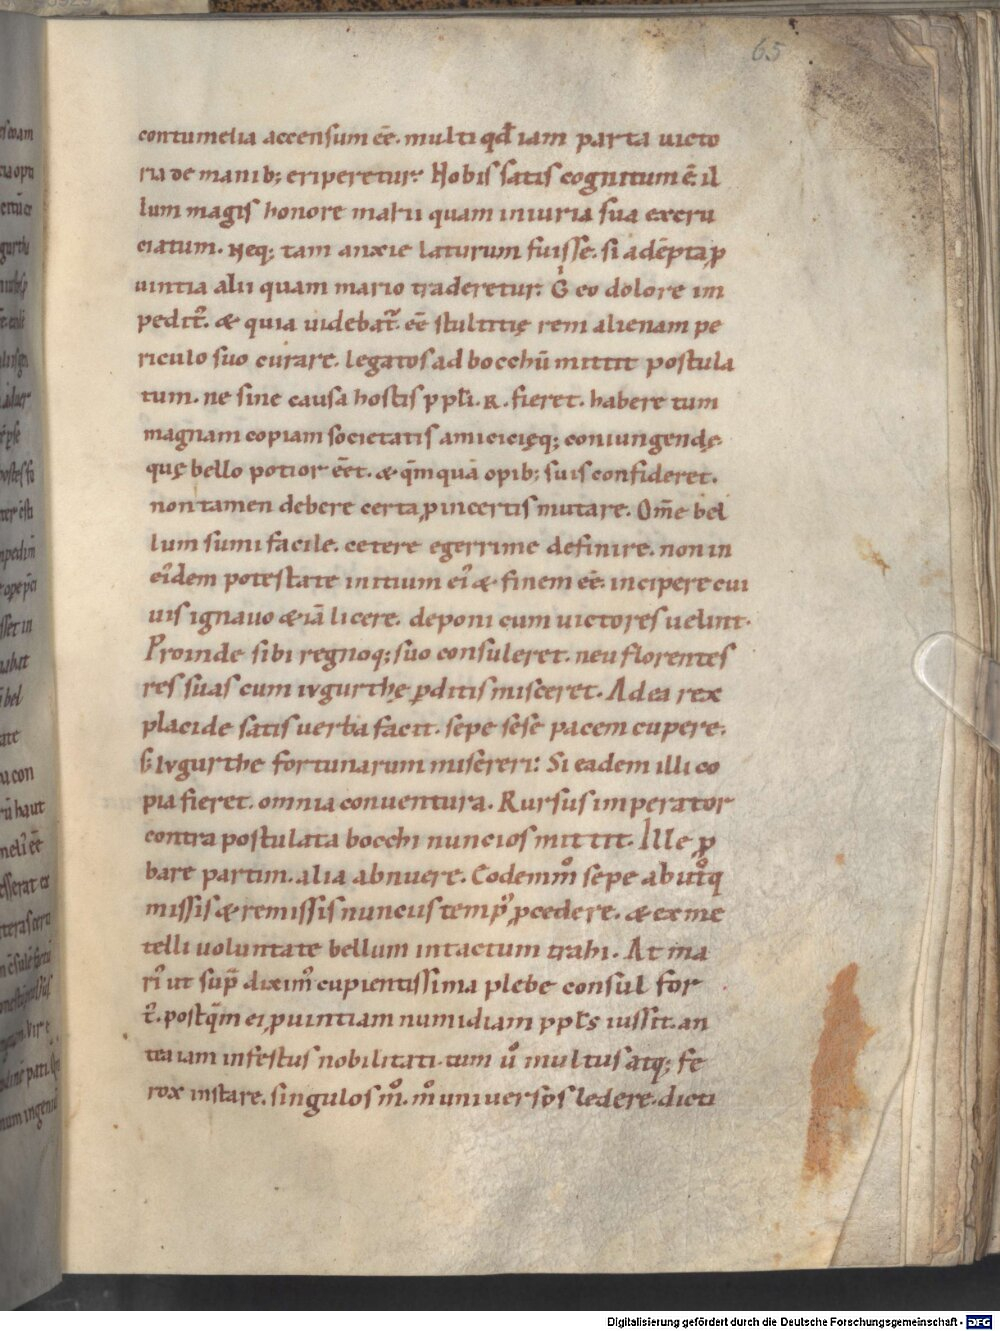 65
contumelia accensum eē. multi qđ iam parta uicto
ria de manib; eriperetur. Nobis satis cognitum ē. il
lum magis honore marii quam iniuria sua excru
ciatum. Neq; tam anxie laturum fuisse. si adēpta ꝓ
uintia alii quam mario traderetur. Gͥ eo dolore im
pedit᷑. & quia uidebat᷑. eē stultitię rem alienam pe
riculo suo curare. legatos ad bocchū mittit postula
tum. ne sine causa hostis p pli. R. fieret. habere tum
magnam copiam societatis amicicięq; coniungendę
quę bello potior eēt. & q̄mquā opib; suis confideret.
non tamen debere certa ꝓ incertis mutare. Om̄e bel
lum sumi facile. cetere egerrime definire. non in
ei᷒dem potestate initium ei᷒ & finem eē. incipere cui
uis ignauo & iā licere. deponi cum uictores uelint.
Proinde sibi regnoq; suo consuleret. neu florentes
res suas cum iugurthę ꝑditis misceret. Ad ea rex
placide satis uerba facit. sepe sese pacem cupere.
s; Iugurthe fortunarum misereri: Si eadem illi co
pia fieret. omnia conuentura. Rursus imperator
contra postulata bocchi nuncios mittit. Ille ꝓ
bare partim. alia abnuere. Eodem mͦ sepe ab utͦq
missis & remissis nunciis temp᷒ ꝓcedere. & ex me
telli uoluntate bellum intactum trahi. At ma
ri᷒ ut sup̄ dixim᷒ cupientissima plebe consul for
t᷑. postq̄m ei ꝓuintiam numidiam p pls iussit. an
tea iam infestus nobilitati. tum uͦ multus atq; fe
rox instare. singulos mͦ. mͦ uniuersos ledere. dicti
Digitalisierung gefördert durch die Deutsche Forschungsgemeinschaft - DFG